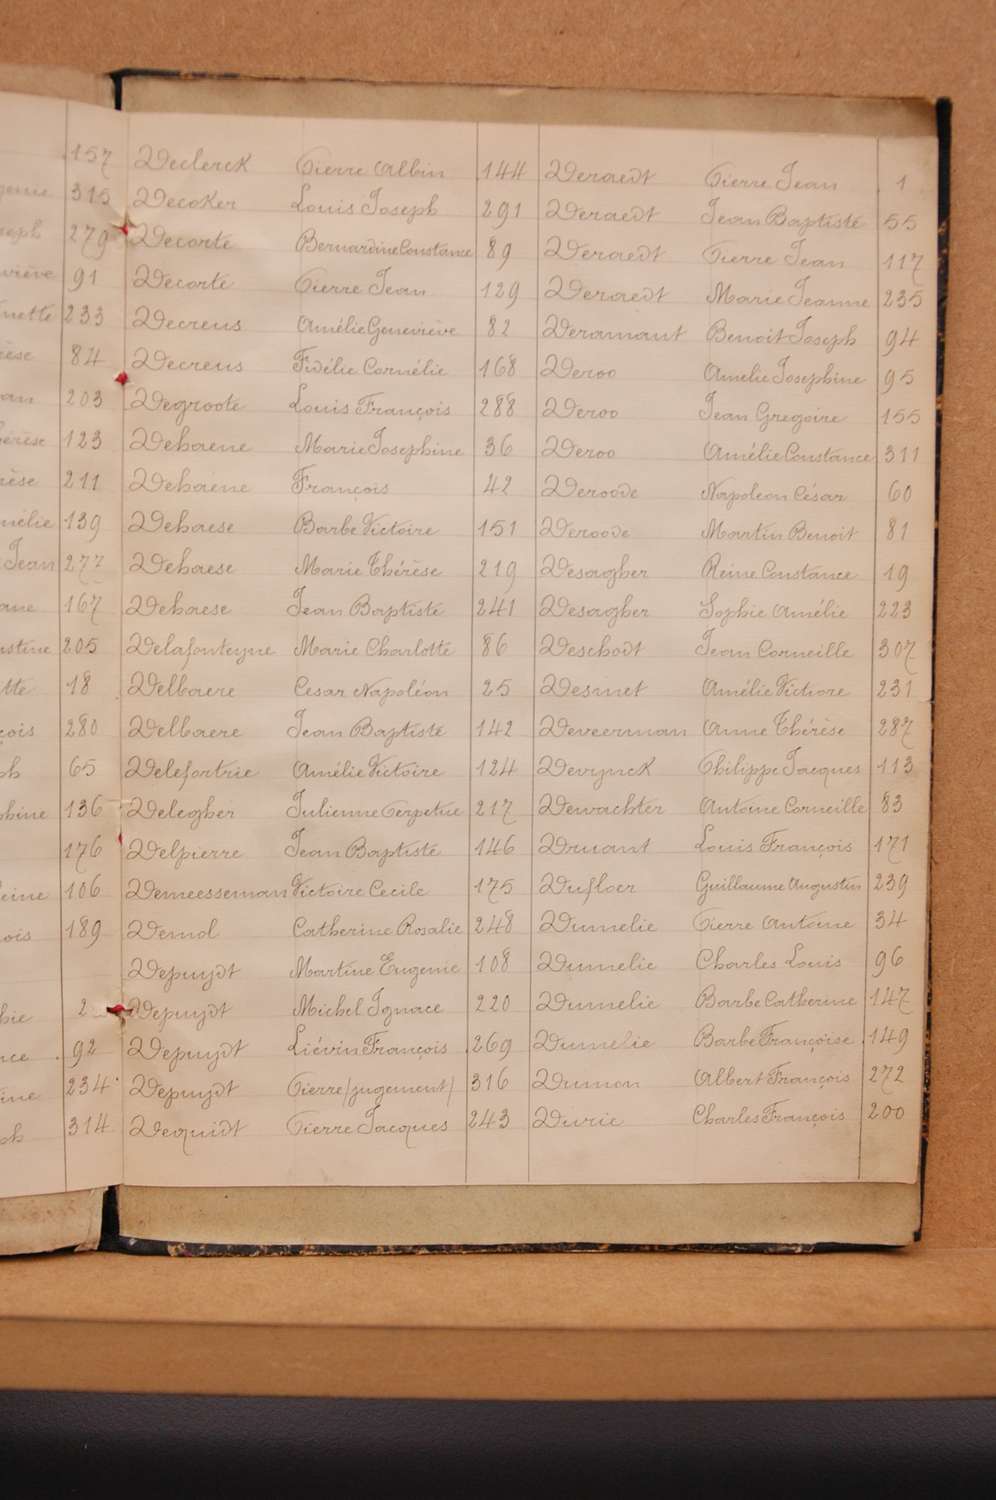 157
genie 315
seph 279
eviève 91
nette 233
rèse 84
ean 203
hérèse 123
rèse 211
mélie 139
Jean 277
ane 167
ustine 205
tte 18
çois 280
ph 65
phine 136
176
eine 106
ois 189
hie 2
nce 92
ine 234
ph 314
Declerck Pierre Albin 144
Decoker Louis Joseph 291
Decorte Bernardine Constance 89
Decorte Pierre Jean 129
Decreus Amélie Geneviève 82
Decreus Fidélie Cornélie 168
Degroote Louis François 288
Dehaene Marie Josephine 36
Dehaene François 42
Dehaese Barbe Victoire 151
Dehaese Marie Thérèse 219
Dehaese Jean Baptiste 241
Delafonteyne Marie Charlotte 86
Delbaere Cesar Napoléon 25
Delbaere Jean Baptiste 142
Delefortrie Amélie Victoire 124
Delegher Julienne Perpetue 217
Delpierre Jean Baptiste 146
Demeesseman Victoire Cecile 175
Demol Catherine Rosalie 248
Depuydt Martine Eugenie 108
Depuydt Michel Ignace 220
Depuydt Liévin François 269
Depuydt Pierre /jugement/ 316
Dequidt Pierre Jacques 243
Deraedt Pierre Jean 1
Deraedt Jean Baptiste 55
Deraedt Pierre Jean 117
Deraedt Marie Jeanne 235
Deramaut Benoit Joseph 94
Deroo Amelie Josephine 95
Deroo Jean Gregoire 155
Deroo Amélie Constance 311
Deroode Napoleon César 60
Deroode Martin Benoit 81
Desagher Reine Constance 19
Desagher Sophie Amélie 223
Deschodt Jean Corneille 307
Desmet Amélie Victiore 231
Deveerman Anne Thérèse 287
Devynck Philippe Jacques 113
Dewachter Antoine Corneille 83
Druant Louis François 171
Dufloer Guillaume Augustin 239
Dumelie Pierre Antoine 34
Dumelie Charles Louis 96
Dumelie Barbe Catherine 147
Dumelie Barbe Françoise 149
Dumon Albert François 272
Durie Charles François 200